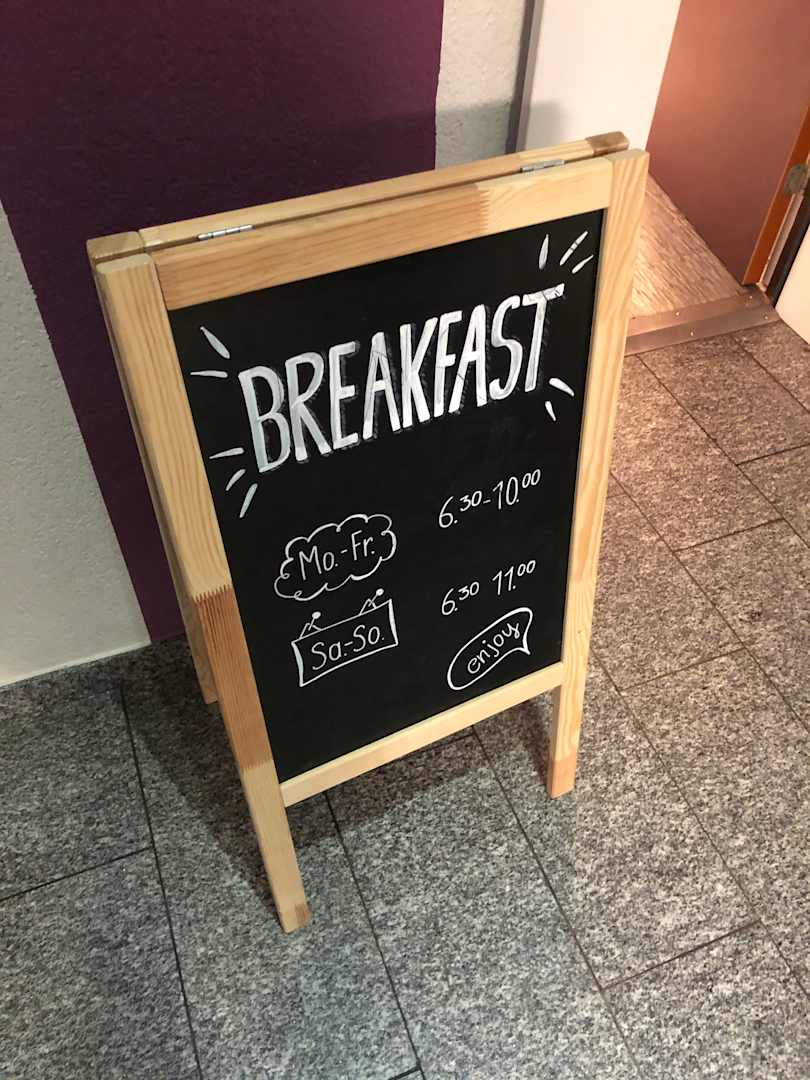 BREAKFAST
Mo.-Fr. 6.30-10.00
Sa.-So. 6.30 11.00
enjoy